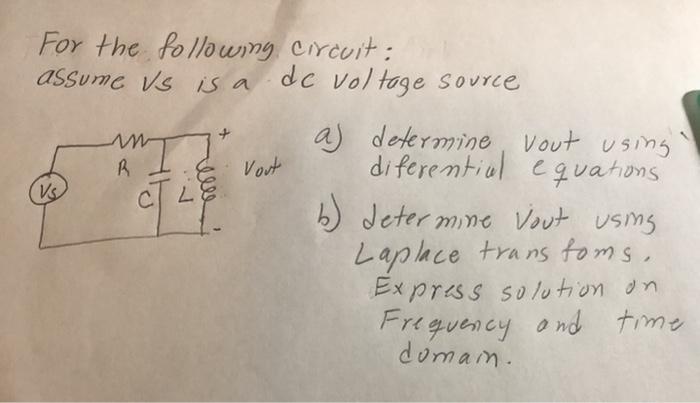 For the following circuit:
assume Vs is a dc voltage source
a) determine Vout using
diferential equations
+
R
Vout
Vs
C
L
-
b) determine Vout using
Laplace trans foms.
Express solution on
Frequency and time
domain.